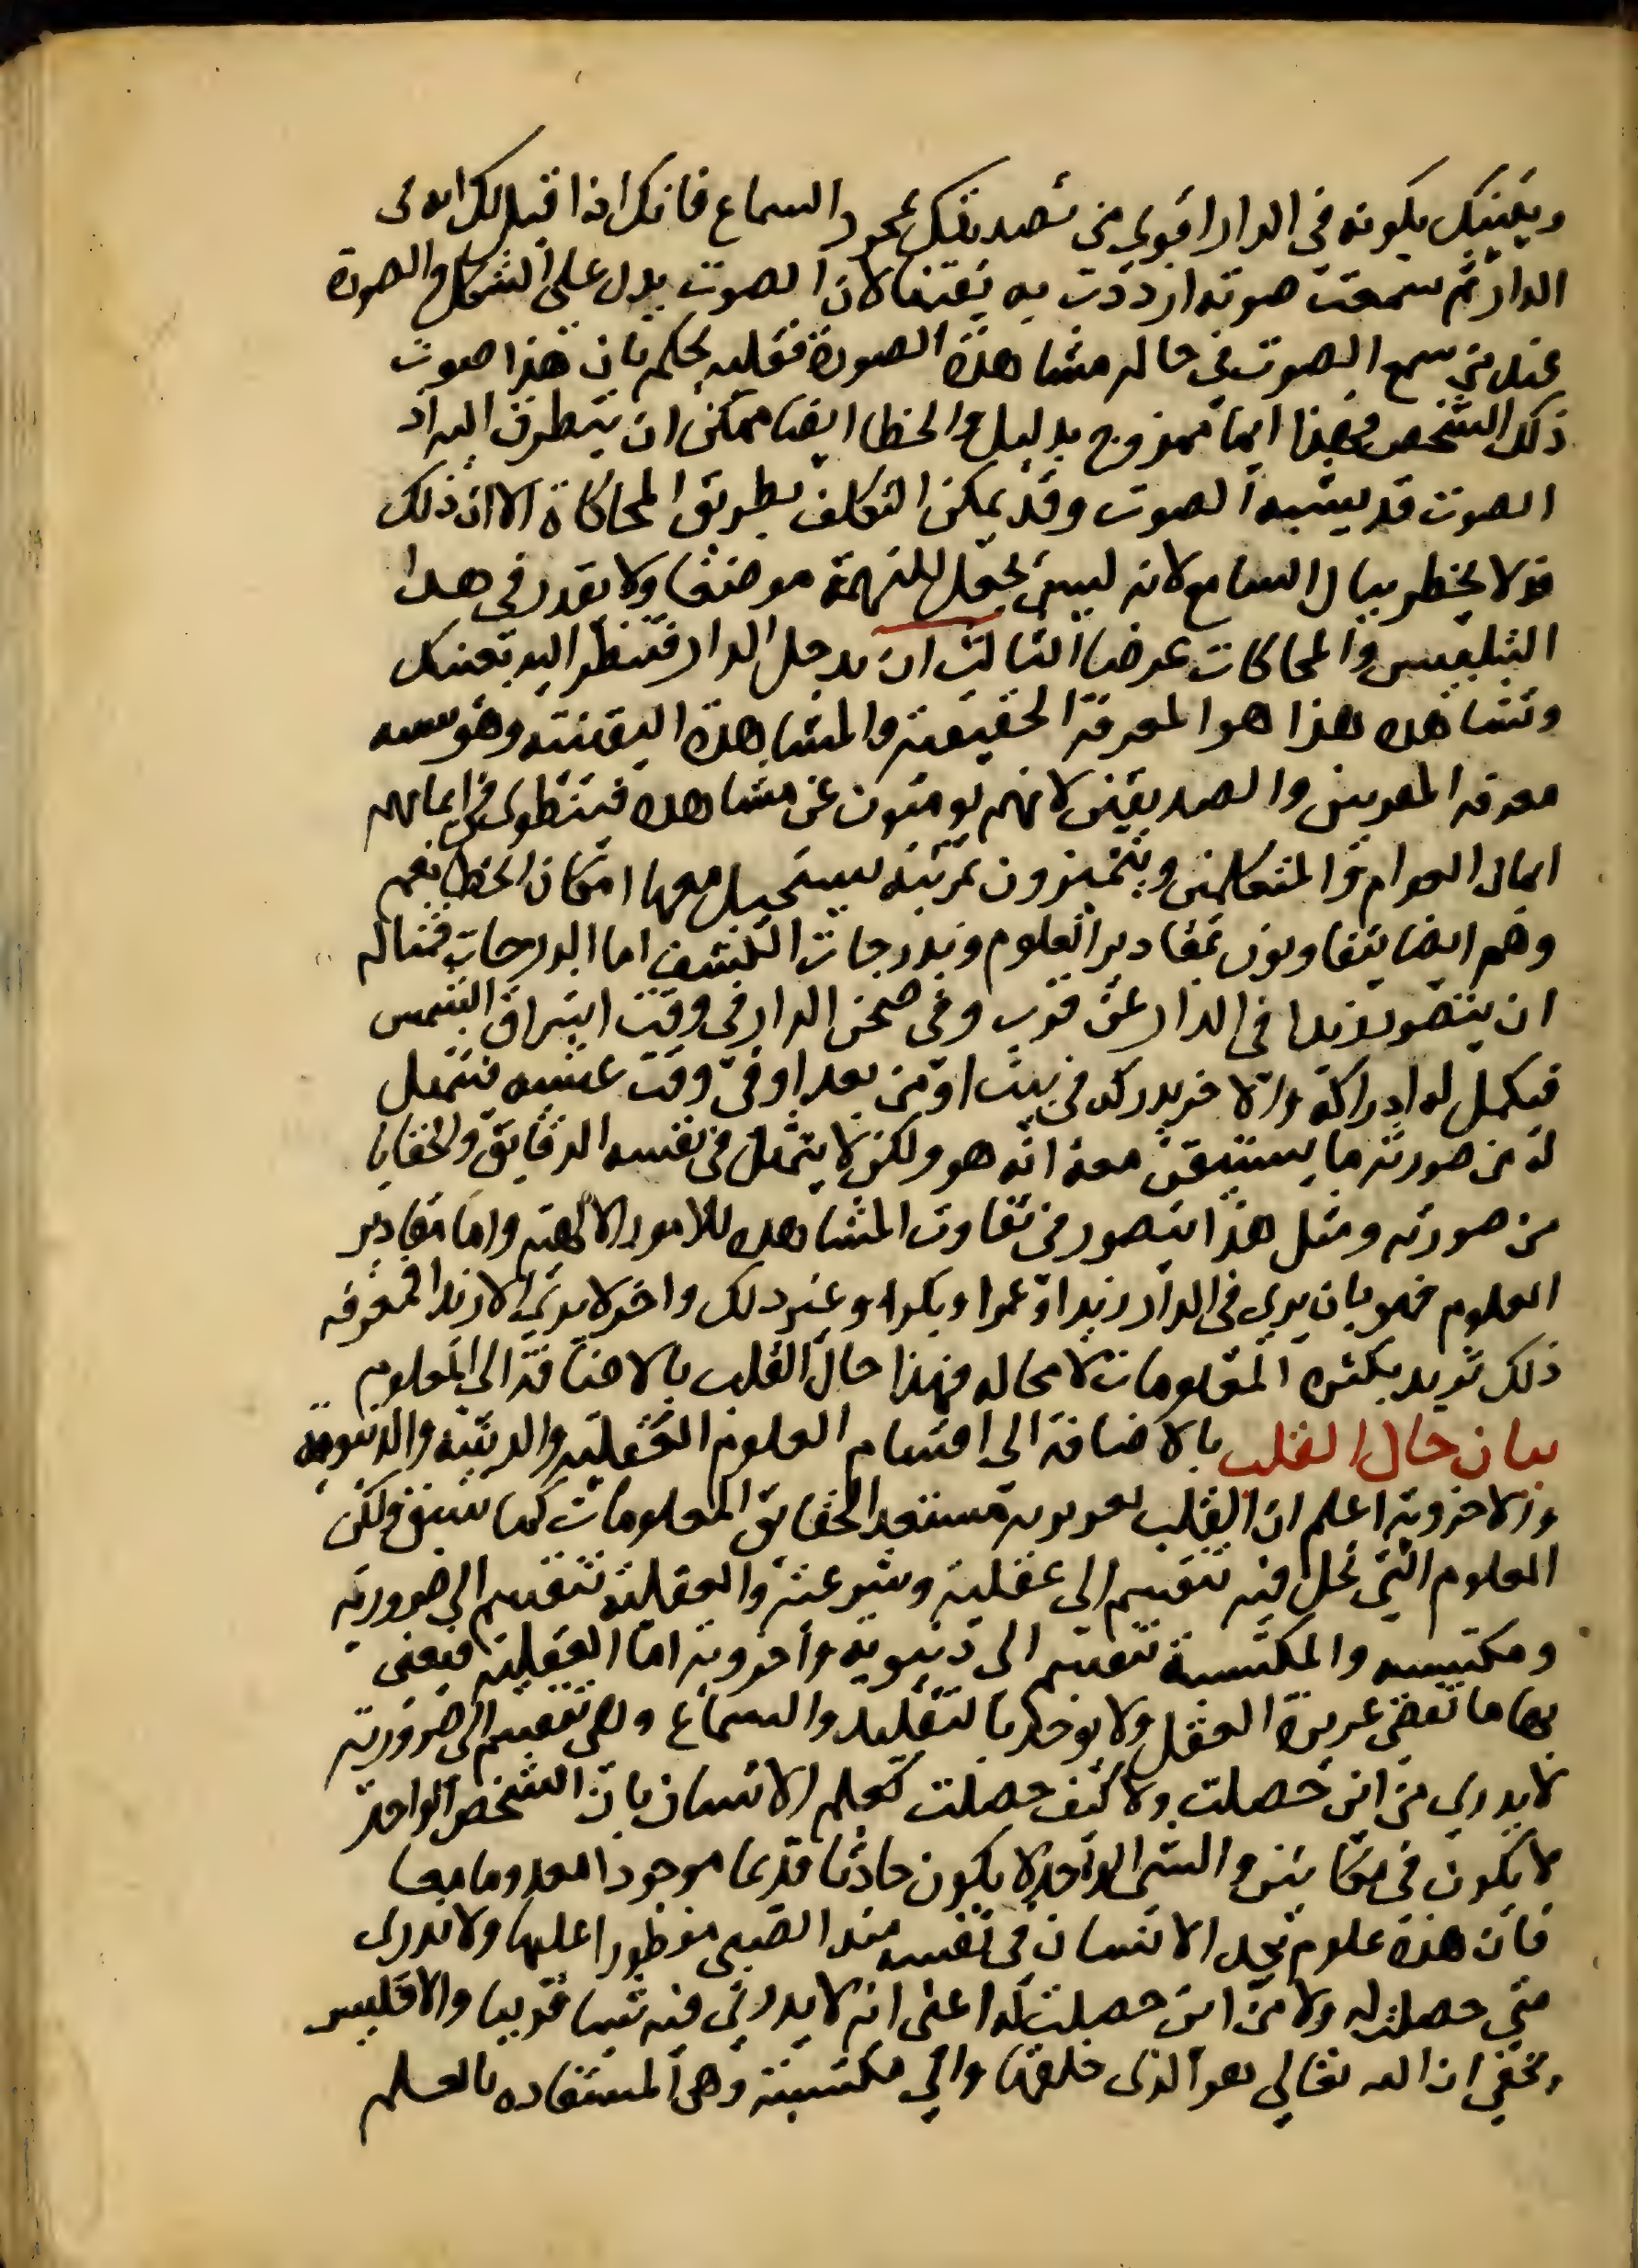 ويقينك بكونه في الدار اقوي من تصديقك بمجرد السماع فانك اذا قيل لك انه في
الدار ثم سمعت صوته ازددت به يقينا لان الصوت يدل على الشكل والصورة
عند من سمع الصوت في حال مشاهدة الصورة فقلبه يحكم بان هذا صوت
ذلك الشخص وهذا ايمان ممزوج بدليل والخطا ايضا ممكن ان يتطرق اليه اذ
الصوت قد يشبه الصوت وقد يمكن التكلف بطريق المحاكاة الا ان ذلك
قد لا يخطر ببال السامع لانه ليس يجعل للتهمة موضعا ولا يقدر في هذا
التلبيس والمحاكات غرضا الثالث ان يدخل الدار فتنظر اليه بعينك
وتشاهده هذا هو المعرفة الحقيقية والمشاهدة اليقينية وهو يشبه
معرفة المقربين والصديقين لانهم يومنون عن مشاهدة فينطوي في ايمانهم
ايمان العوام والمتكلمين ويتميزون بمزية يستحيل معها امكان الخطا نعم
وهم ايضا يتفاوتون بمقادير العلوم وبدرجات الكشف اما الدرجات فمثاله
ان يتصور زيدا في الدار عن قرب وفي صحن الدار في وقت اشراق الشمس
فيكمل له ادراكه والاخر يدركه في بيت او من بعد او في وقت عشية فيتمثل
له من صورته ما يستيقن معه انه هو ولكن لا يتمثل في نفسه الدقايق والخفايا
من صورته ومثل هذا يتصور في تفاوت المشاهدة للامور الالهية واما مقادير
العلوم فهو بان يرى في الدار زيدا وعمرا وبكرا وغير ذلك واخر لا يرى الا زيدا فمعرفة
ذلك تزيد بكثرة المعلومات لا محاله فهذا حال القلب بالاضافة الى العلوم
بيان حال القلب بالاضافة الى اقسام العلوم العقلية والدينية والدنيوية
والاخروية اعلم ان القلب بغريزته مستعد لحقايق المعلومات كما سبق ولكن
العلوم التي تحل فيه تنقسم الى عقلية وشرعية والعقلية تنقسم الى ضرورية
ومكتسبه والمكتسبة تنقسم الى دنيوية واخروية اما العقلية فنعنى
بها ما تقضى غريزة العقل ولا يوخذ بالتقليد والسماع وهي تنقسم الى ضرورية
لا يدرى من اين حصلت ولا كيف حصلت كعلم الانسان بان الشخص الواحد
لا يكون في مكانين والشى الواحد لا يكون حادثا قديما موجودا معدوما معا
فان هذه علوم يجد الانسان في نفسه منذ الصبى مفطورا عليها ولا يدرى
متى حصلت له ولا من اين حصلت له اعنى انه لا يدرى فيه سببا قريبا والا فليس
يخفي ان الله تعالي هو الذى خلقها والى مكتسبة وهى المستفاده بالعلم